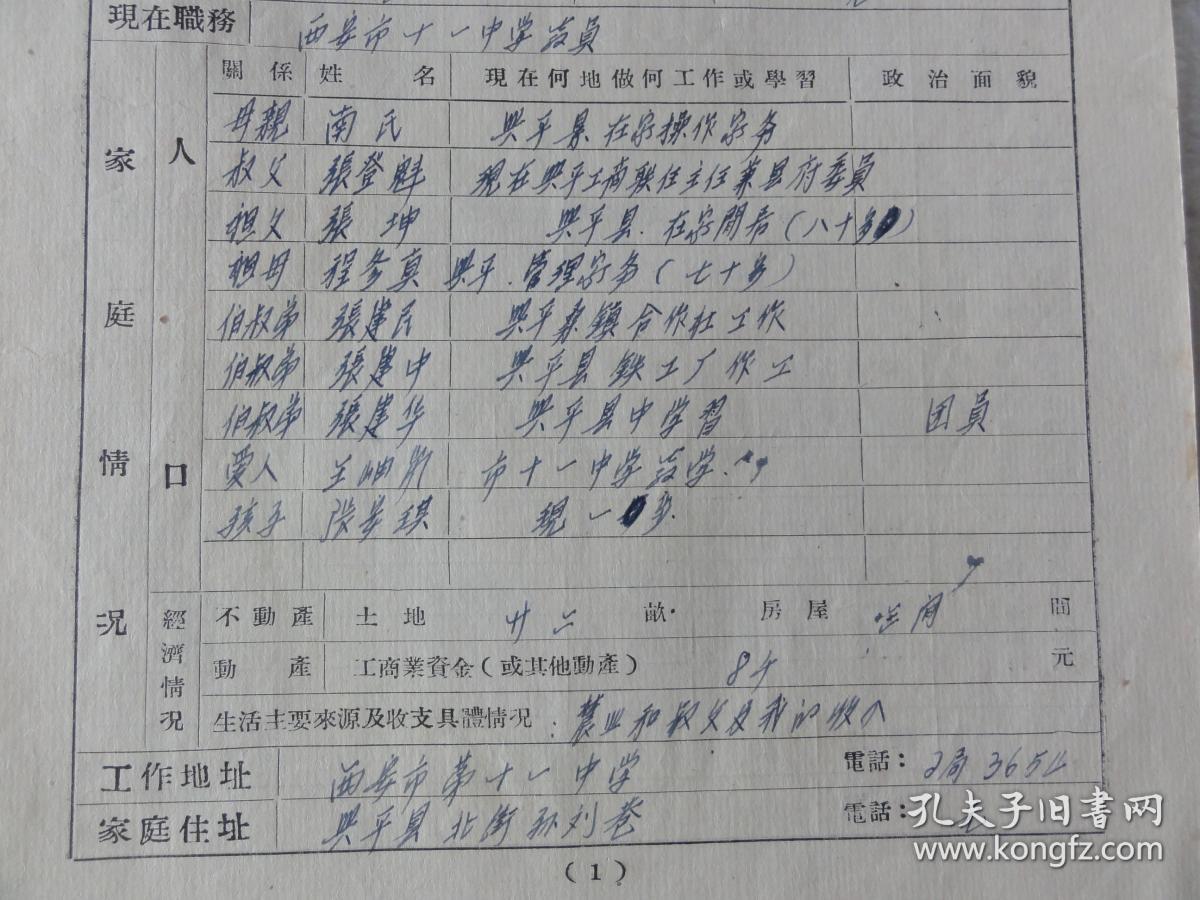 現在職務 西安市十一中学教員
關係 姓名 現在何地做何工作或學習 政治面貌
家庭情況
人口
母親 南氏 興平县在家操作家务
叔父 張登魁 现在興平工商联任主任兼县府委員
祖父 張坤 興平县.在家閒居(八十多)
祖母 程参真 興平.管理家务(七十多)
伯叔弟 張建民 興平桑鎮合作社工作
伯叔弟 張建中 興平县鉄工厂作工
伯叔弟 張建华 興平县中学習 团員
爱人 市十一中学教学.
孩子 张安琪 現一岁
經濟情況
不動產 土地 廿六 畝. 房屋 間
動產 工商業資金(或其他動產) 8千 元
生活主要來源及收支具體情況: 農业和叔父及我的收入
工作地址 西安市第十一中学 電話: 2局3654
家庭住址 興平县北街孙刘巷 電話:
(1)
孔夫子旧書网
www.kongfz.com